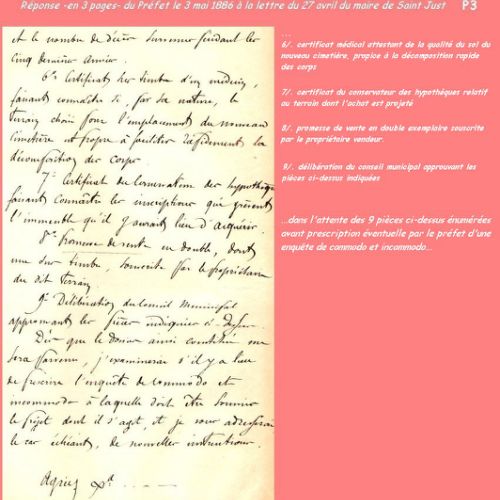 Réponse -en 3 pages- du Préfet le 3 mai 1886 à la lettre du 27 avril du maire de Saint Just P3
et le nombre de décès survenus pendant les
cinq dernières années.
6° Certificat sur timbre d'un médecin,
faisant connaître si, par sa nature, le
terrain choisi pour l'emplacement du nouveau
cimetière est propre à faciliter rapidement la
décomposition des corps.
7° Certificat du Conservateur des hypothèques
faisant connaître les inscriptions que présente
l'immeuble qu'il y aurait lieu d'acquérir.
8° Promesse de vente en double, dont
une sur timbre, souscrite par le propriétaire
du dit terrain.
9° Délibération du Conseil Municipal
approuvant les pièces indiquées ci-dessus.
Dès que le dossier ainsi constitué me
sera parvenu, j'examinerai s'il y a lieu
de prescrire l'enquête de Commodo et
incommodo à laquelle doit être soumis
le projet dont il s'agit et je vous adresserai
le cas échéant, de nouvelles instructions.
Agréez
...
6/. certificat médical attestant de la qualité du sol du
nouveau cimetière, propice à la décomposition rapide
des corps
7/. certificat du conservateur des hypothèques relatif
au terrain dont l'achat est projeté
8/. promesse de vente en double exemplaire souscrite
par le propriétaire vendeur.
9/. délibération du conseil municipal approuvant les
pièces ci-dessus indiquées
...dans l'attente des 9 pièces ci-dessus énumérées
avant prescription éventuelle par le préfet d'une
enquête de commodo et incommodo...